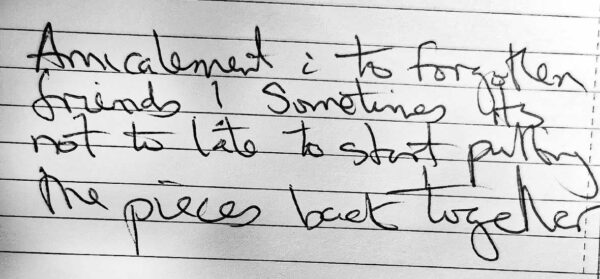 Amicalement : to forgotten
friends ! Sometimes its
not to late to start putting
the pieces back together